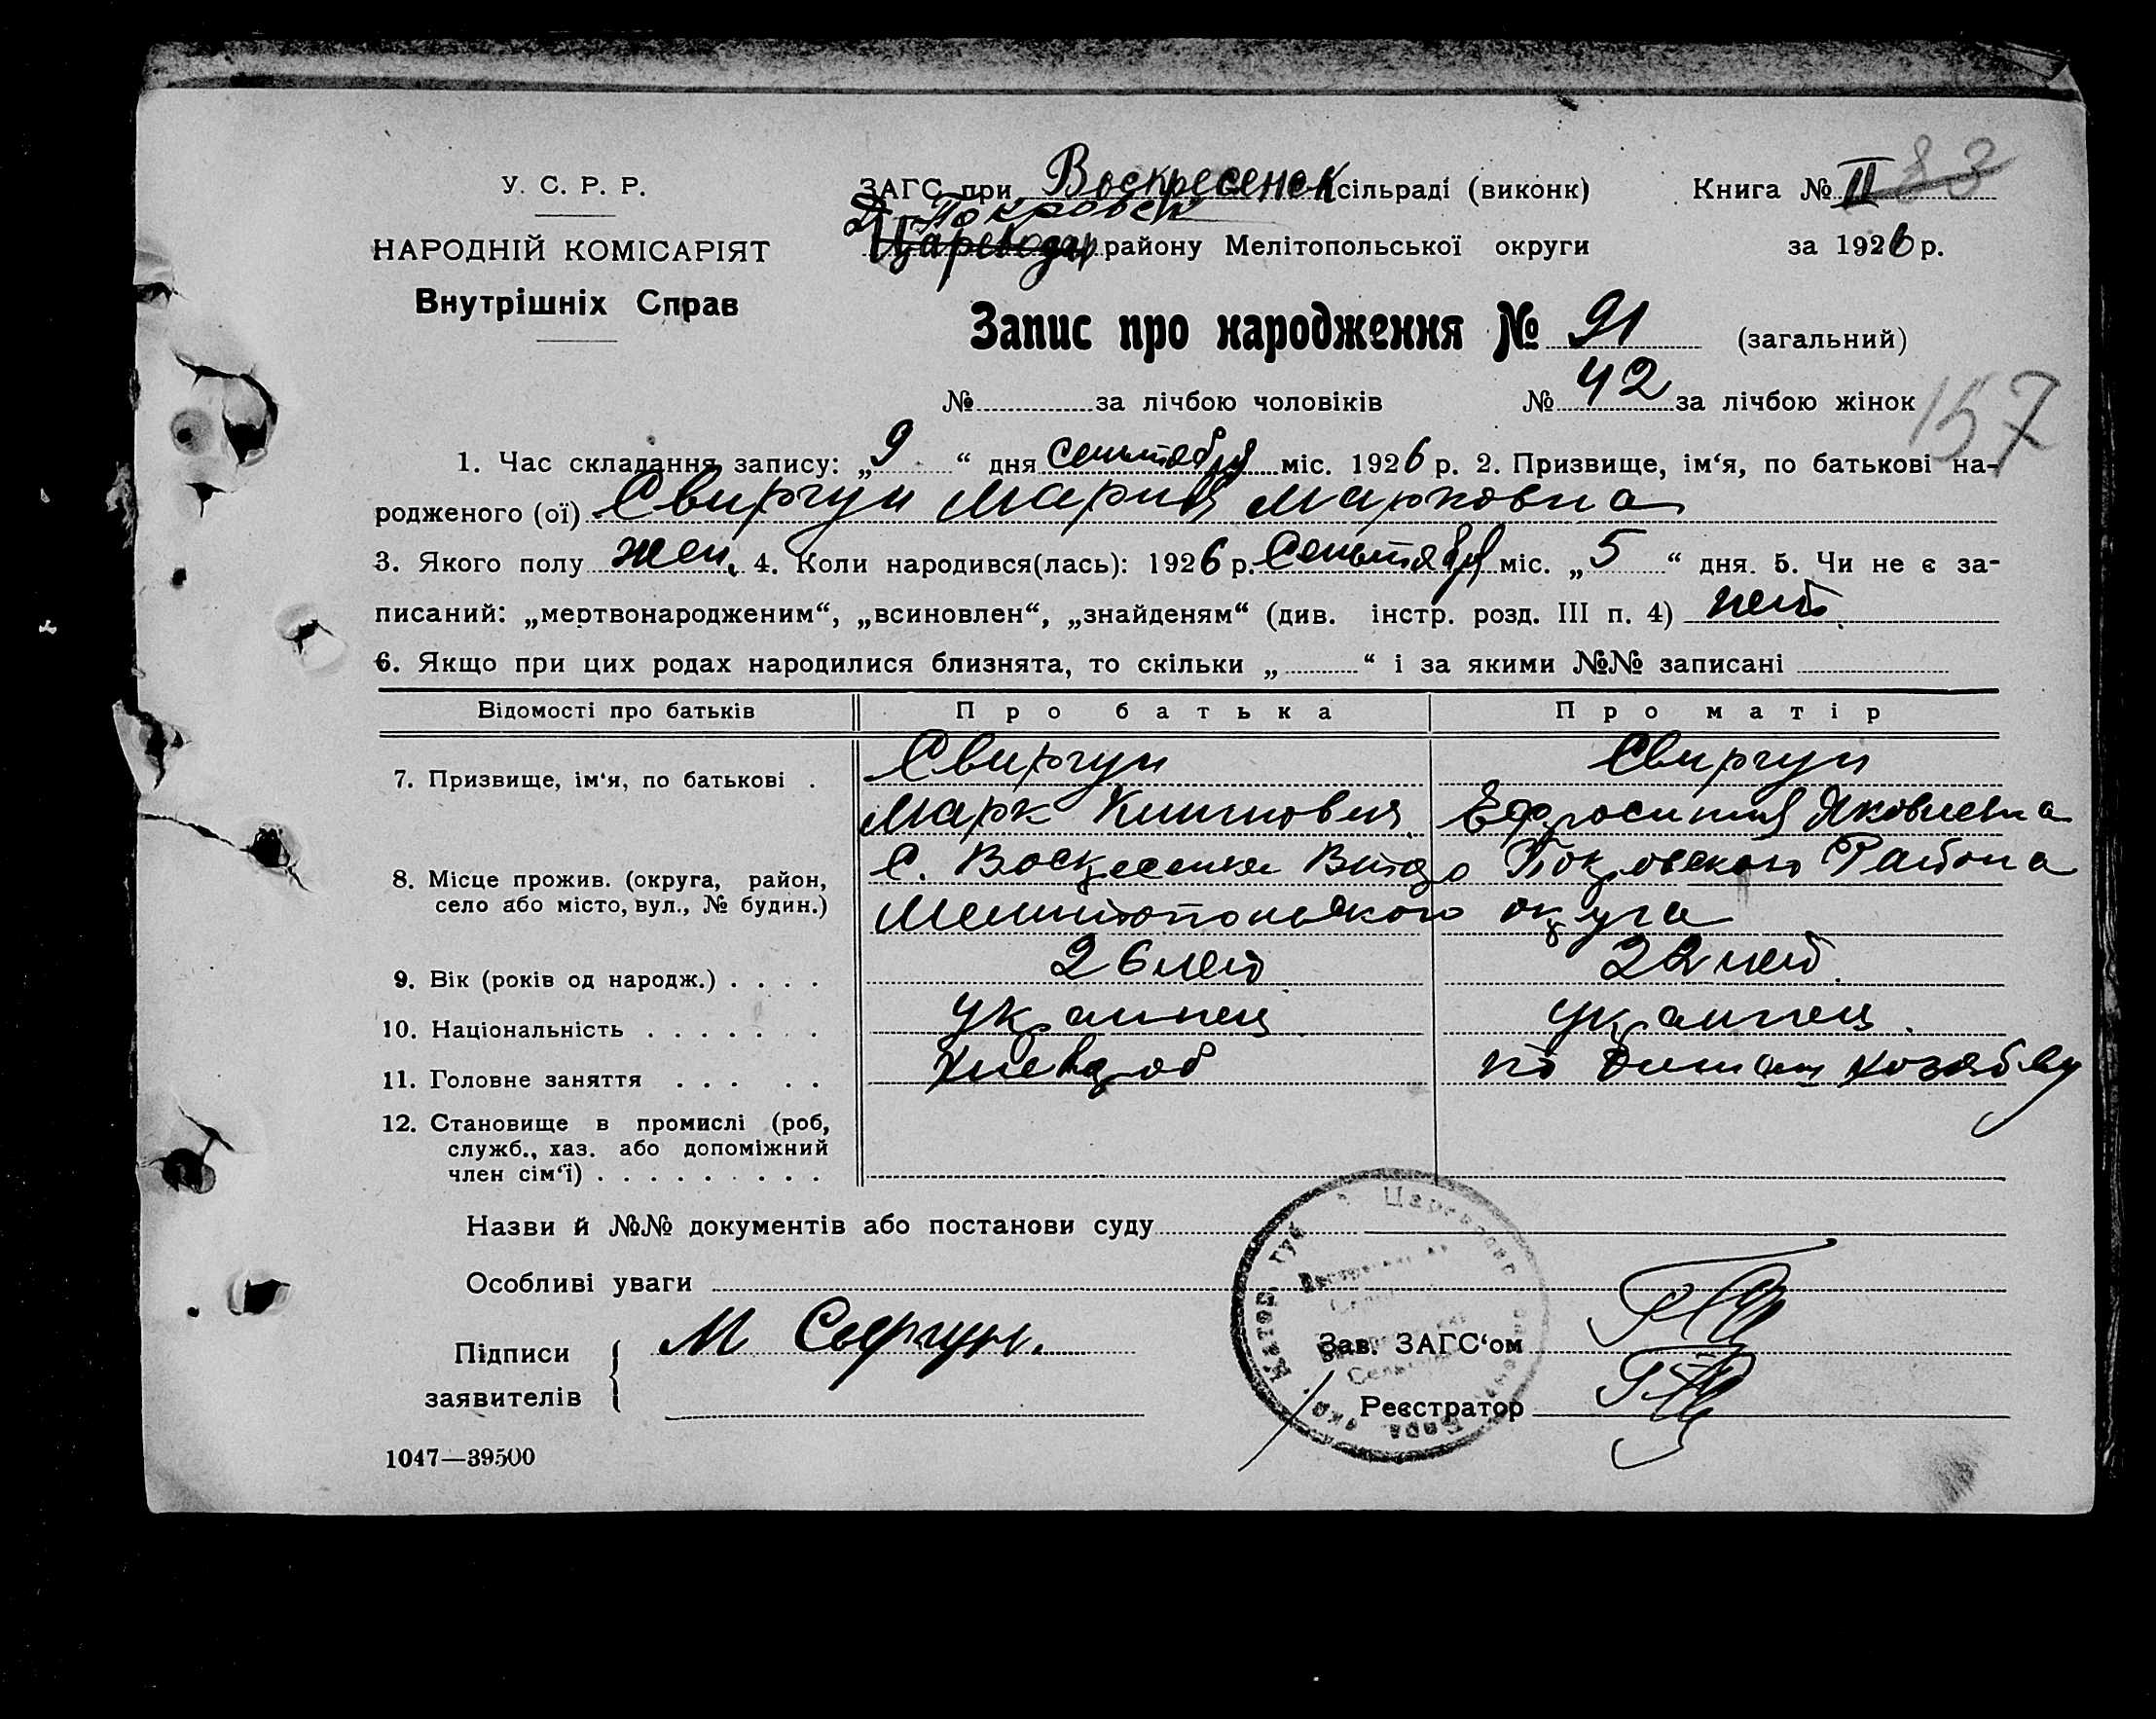 У. С. Р. Р.
НАРОДНІЙ КОМІСАРІЯТ
Внутрішніх Справ
ЗАГС при Воскресенск сільраді (виконк)
Покровск
Цареводар району Мелітопольської округи
Книга № II 83
за 1926 р.
Запис про народження № 91 (загальний)
№ за лічбою чоловіків № 42 за лічбою жінок
157
1. Час складання запису: „9“ дня сентября міс. 1926 р. 2. Призвище, ім‘я, по батькові на-
родженого (ої) Свиргун Мария Марковна
3. Якого полу жен. 4. Коли народився(лась): 1926 р. Сентября міс. „5“ дня. 5. Чи не є за-
писаний: „мертвонародженим“, „всиновлен“, „знайденям“ (див. інстр. розд. III п. 4) нет.
6. Якщо при цих родах народилися близнята, то скільки „ “ і за якими №№ записані
Відомості про батьків Про батька Про матір
7. Призвище, ім‘я, по батькові . Свиргун Свиргун
Марк Ефросиния Яковлевна
8. Місце прожив. (округа, район, С. Воскресенка Покровского Района
село або місто, вул., № будин.) Мелитопольского округа
9. Вік (років од народж.) . . . . 26 лет 22 лет.
10. Національність . . . . . . . украинец украинец.
11. Головне заняття . . . . . Хлебороб по домаш хозяйству
12. Становище в промислі (роб,
служб., хаз. або допоміжний
член сім‘ї) . . . . . . . . .
Назви й №№ документів або постанови суду
Особливі уваги
Підписи
заявителів
М Свргун.
Зав. ЗАГС‘ом
Реєстратор
1047—39500